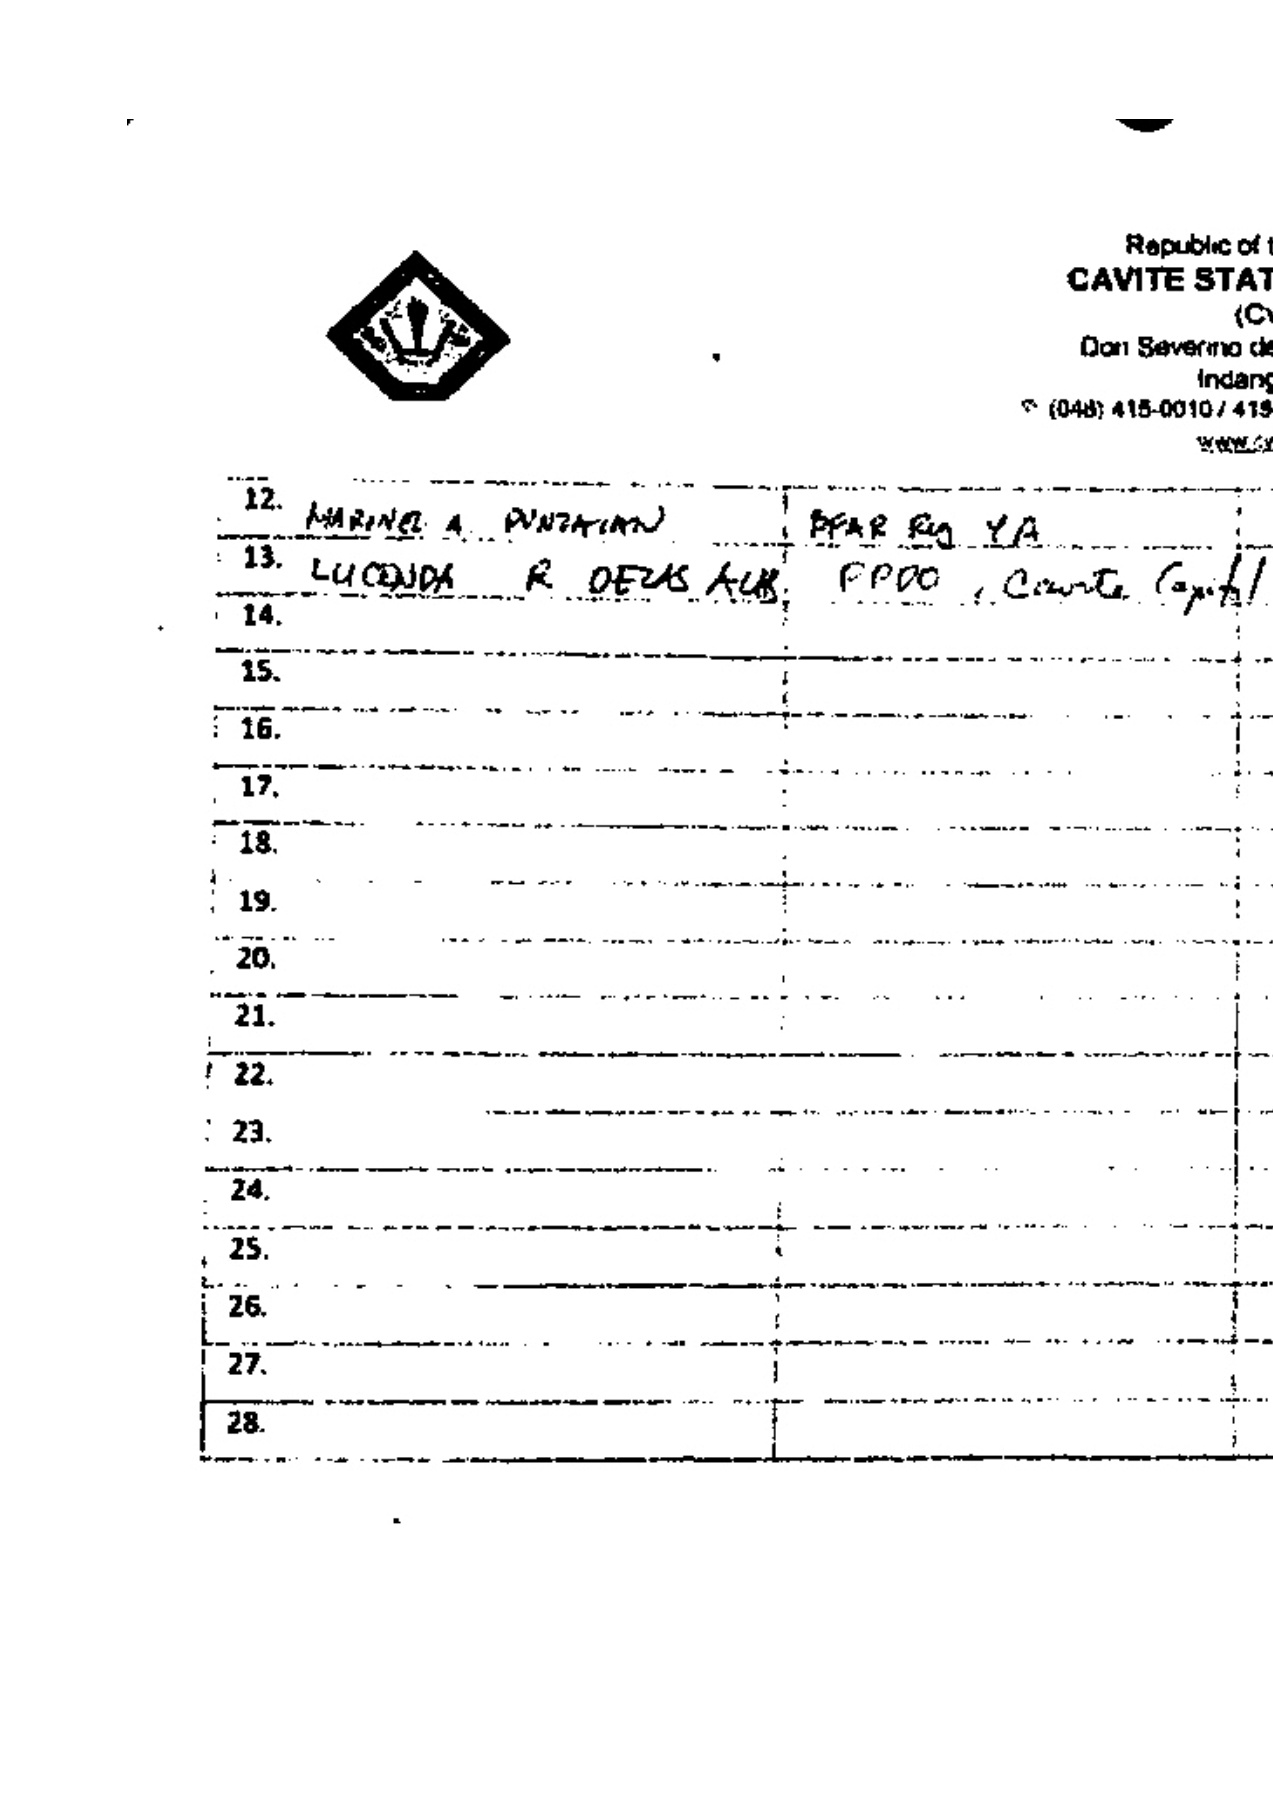 Republic of t
CAVITE STAT
(Cv
Don Severino de
Indang
(046) 415-0010 / 415
www.cv
12. MARINEL A. PUNZALAN BFAR Reg YA
13. LUCENDA R DELAS ALAS PPDO, Cavite Capitol
14.
15.
16.
17.
18.
19.
20.
21.
22.
23.
24.
25.
26.
27.
28.